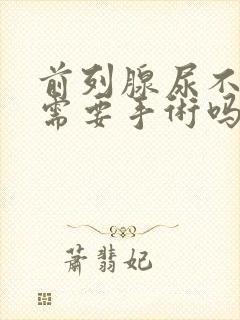 前列腺尿不
需要手術吗
蕭翡妃